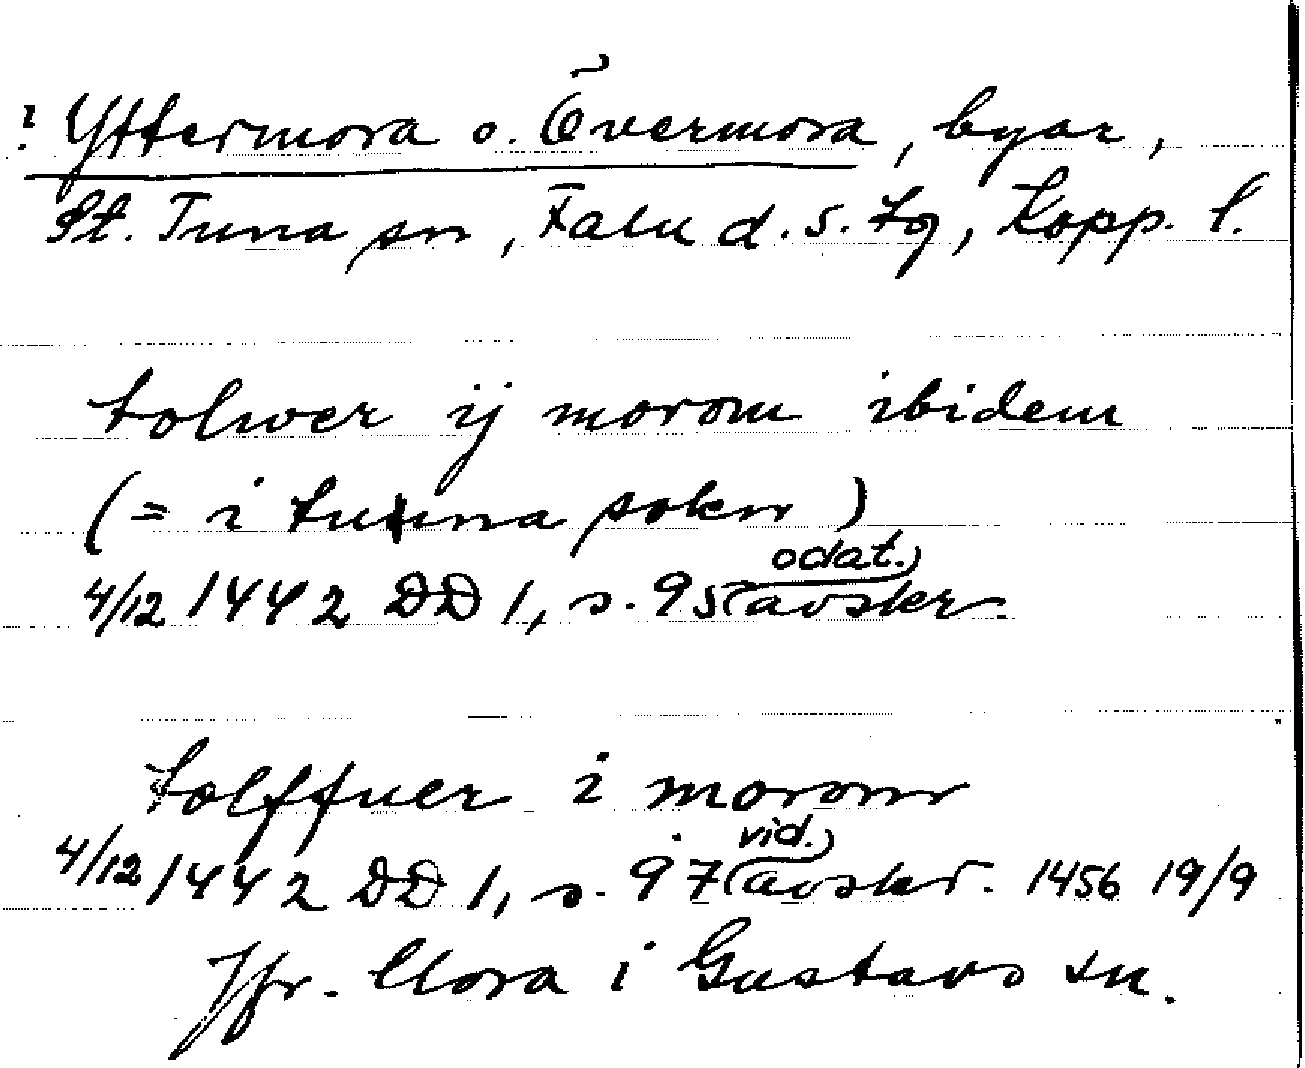 ? Yttermora o. Övermora, byar,
St. Tuna sn, Falu d. s. tg, Kopp. l.
tolwer ij morom ibidem
(= i tunna sokn)
odat.
4/12 1442 DD 1, s. 95 (avskr.
tolffuer i moromr
vid.
4/12 1442 DD 1, s. 97 (avskr. 1456 19/9
Jfr. Mora i Gustavs sn.